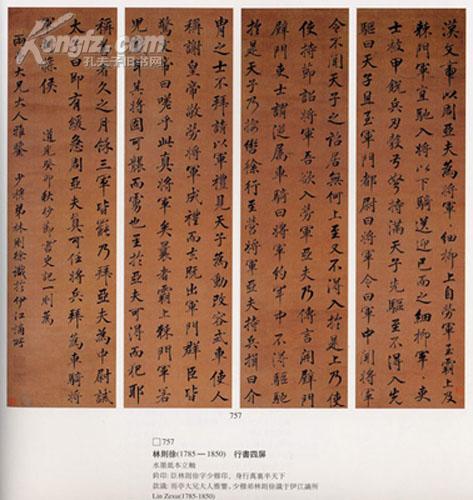 漢文帝以周亞夫為將軍細柳上自勞軍至霸上及
棘門軍直馳入將以下騎送迎已而之細柳軍吏
士被甲銳兵刃彀弓弩持滿天子先驅至不得入先
驅曰天子且至軍門都尉曰軍令曰軍中聞將軍
令不聞天子之詔居無何上至又不得入於是上乃使
使持節詔將軍吾欲入勞軍亞夫乃傳言開壁門
壁門吏士謂從屬車騎曰將軍約軍中不得驅馳
於是天子乃按轡徐行至營將軍亞夫持兵揖曰介
冑之士不拜請以軍禮見天子為動改容式車使人
稱謝皇帝敬勞將軍成禮而去既出軍門群臣皆
驚文帝曰嗟乎此真將軍矣曩者霸上棘門軍若
兒戲耳其將固可襲而虜也至於亞夫可得而犯耶
稱善者久之月餘三軍皆罷乃拜亞夫為中尉誡
太子曰即有緩急周亞夫真可任將兵拜為車騎將
條侯 道光癸卯秋杪節書史記一則為
雨亭大兄大人雅鑒 少穆弟林則徐識於伊江謫所
Kongfz.com
孔夫子旧书网
757
□757
林則徐(1785—1850) 行書四屏
水墨紙本立軸
鈐印:臣林則徐字少穆印、身行萬裏半天下
款識:雨亭大兄大人雅鑒,少穆弟林則徐識于伊江謫所
Lin Zexu(1785-1850)